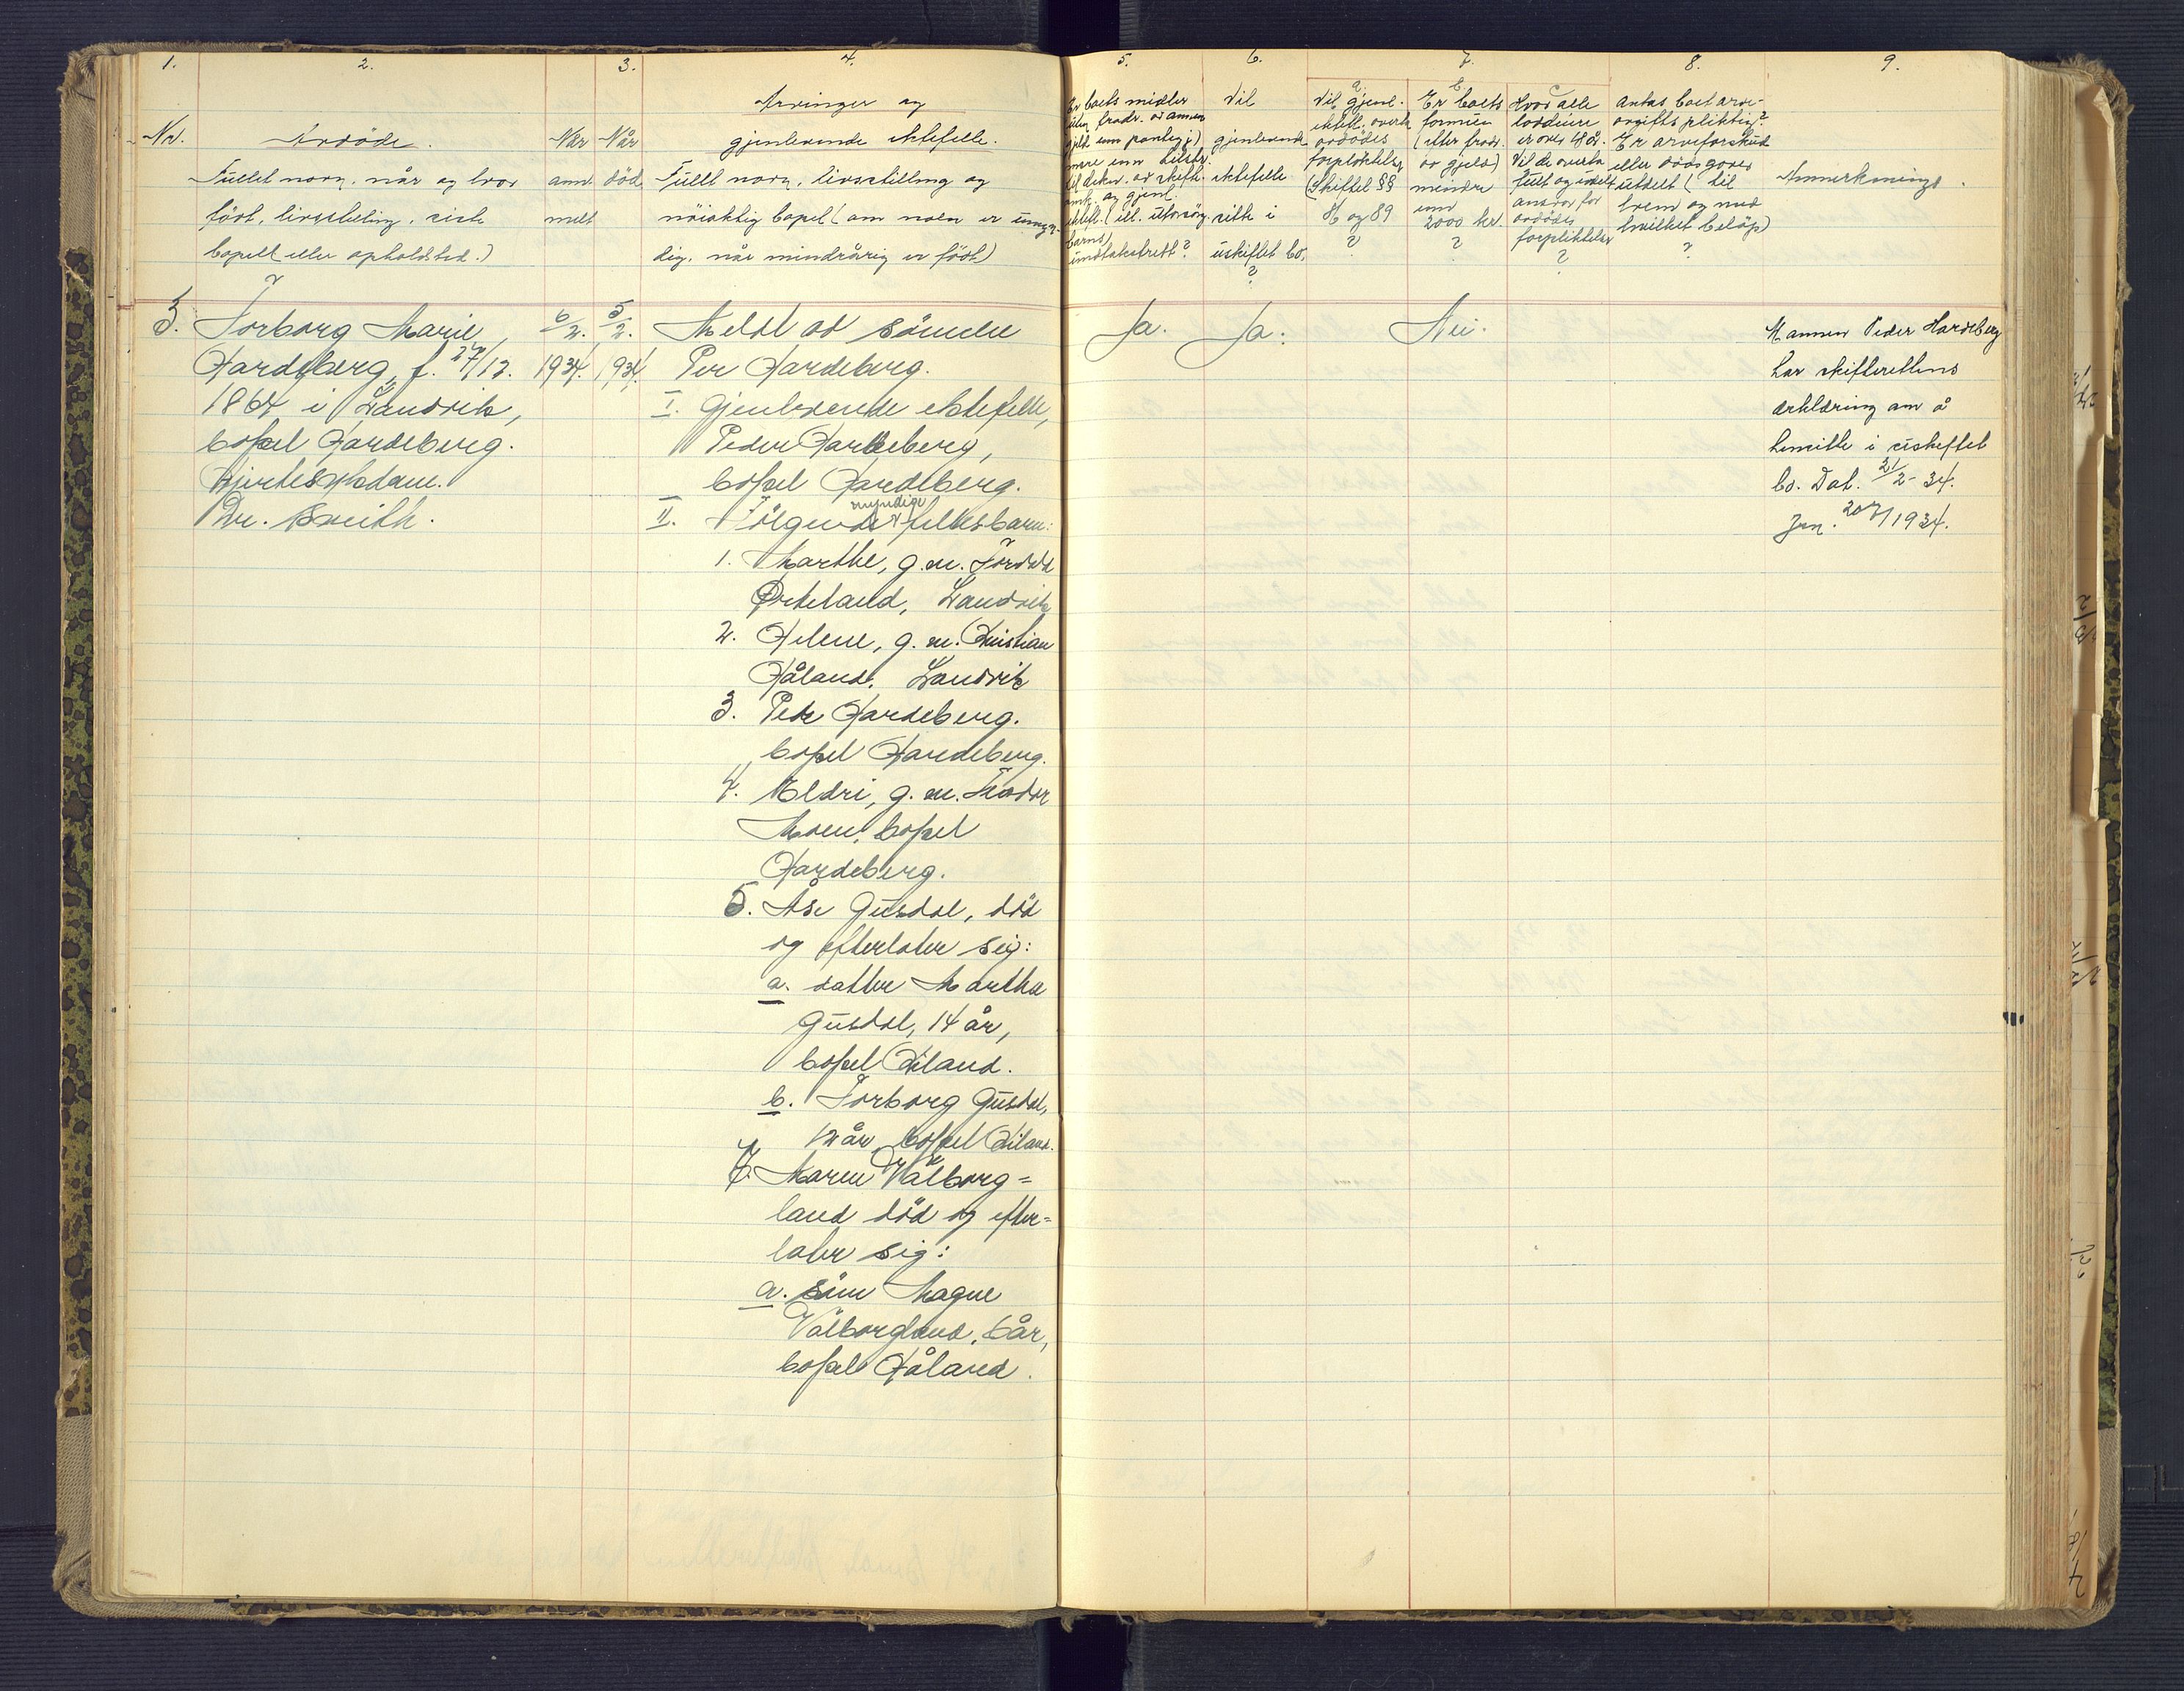 1. 2. 3. 4. 5. 6. 7. 8. 9.
Nr.
Avdöde.
Fullt navn, når og hvor
født, livsstilling, siste
bopel eller opholdsted.)
Når
anm
meldt
Når
död
Arvinger og
gjenlevende ektefelle.
Fullt navn, livsstilling og
nöiaktig bopel (om noen er umyn-
dig, når mindreårig er född)
Er boets midler
mere enn
undtaksfritt?
Vil
gjenlevende
ektefelle
sitte i
uskiftet bo.
?
a.
Vil gjenl.
ektef. overta
avdödes
forpliktelser
(Skiftel §§
78 og 89
?
b.
Er boets
formue
(efter fradr.
av gjeld)
mindre
enn
2000 kr.
?
c
Hvis alle
loddeiere
er over 18 år.
Vil de overta
fullt og udelt
ansvar for
avdödes
forpliktelser
?
Antas boet arve-
avgiftspliktig?
Er arveforskudd
eller avdøs gaver
utdelt (til
hvem og med
hvilket beløp)
?
Anmerkninger.
3. Torborg Marie
Hardeberg, f. 27/12.
1864 i Landvik,
bopel Hardeberg.
Hjertesykdom.
Dr. Smith.
6/2. 1934.
5/2. 1934.
Meldt av sönnen
Per Hardeberg.
I. Gjenlevende ektefelle,
Peder Hardeberg,
bopel Hardeberg.
II. Fölgende myndige fellesbarn:
1. Marthe, g.m. Tordvald
Birkeland, Landvik
2. Helene, g.m. Kristian
Håland, Landvik
3. Peder Hardeberg.
bopel Hardeberg.
4. Eldri, g.m. Teodor
Moen, bopel
Hardeberg.
5. Åse Gusdal, död
og efterlater sig:
a. datter Martha
Gusdal, 14 år,
bopel Åiland.
b. Torborg Gusdal,
12 år, bopel Åiland.
6. Maren Valborg=
land död og efter=
later sig:
a. sönn Magne
Valborgland, 6 år,
bopel Håland.
Ja.
Ja.
Nei.
Mannen Peder Hardeberg
har skifterettens
erklæring om å
hensitte i uskiftet
bo. Dat. 21/2- 34.
Jnr. 207/1934.